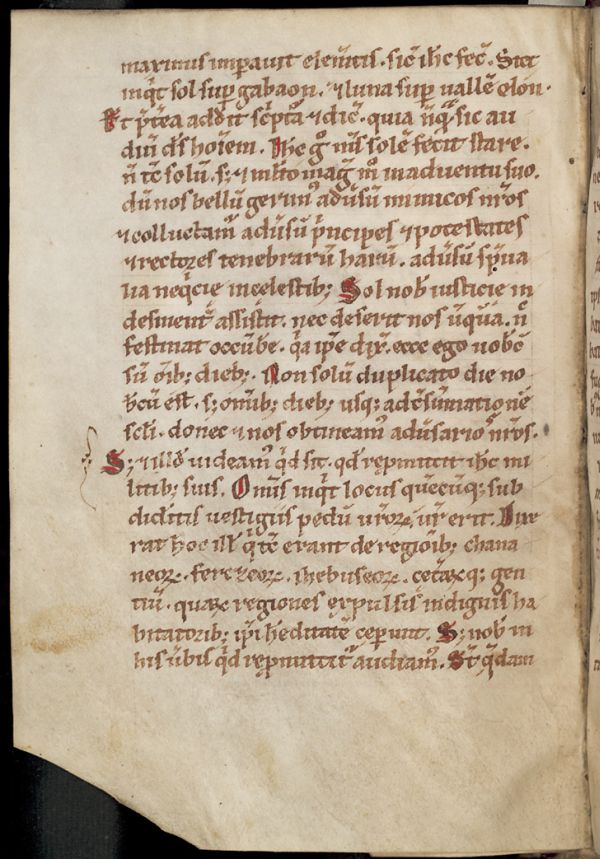 maximus imperauit elem̅tis. sic̅ ih̅c fec̅. Stet
inq̅t sol sup̱ gabaon. ⁊ luna sup̱ uallē elon.
Et p̅t̅ea addit sc̅ptā ⁊ dic̅. quia nūq̅ sic au
diuit d̅s hoīem. Ih̅c g̊ nr̅s solē fecit stare.
n̅ tc̅ solū. s; ⁊ m̅to mag̅ m̊ in aduentu suo.
dū nos bellū gerim᷒ adūsū inimicos nr̅os
⁊ colluctam᷒ adūsū p̅ncipes ⁊ potestates
⁊ rectores tenebrarū harū. adūsū sp̅ua
lia neq̅cie in celestib; Sol nob̅ iusticie in
desinent̅ assistit. nec deserit nos ūquā. n̅
festinat occūb̅e. q̅a ip̅e dix̅. ecce ego uob̅c̅
sū om̅ib; dieb; Non solū duplicato die no
b̅cū est. s; omīb; dieb; usq; ad c̅sūmationē
sc̅li. donec ⁊ nos obtineam᷒ adūsarios nr̅os.
S; ⁊ illd̅ uideam᷒ q̅d sit. qd̅ rep̱mittit ih̅c mi
litib; suis. Om̅s inq̅t locus quēcūq; sub
dideritis uestigiis pedū ur̅oꝝ. ur̅ erit. Iue
rat hoc ill̅ q̅ tc̅ erant de regiōib; chana
neoꝝ. ferezeoꝝ. ⁊ hebuseoꝝ. cet̅aꝝq; gen
tiū. quaꝝ regiones expulsis indignis ha
bitatorib; ip̅i h̅editatē ceperunt. S; nob̅ in
his ūbis q̅d rep̱mittat᷒ audiam᷒. St̅ q̅dam